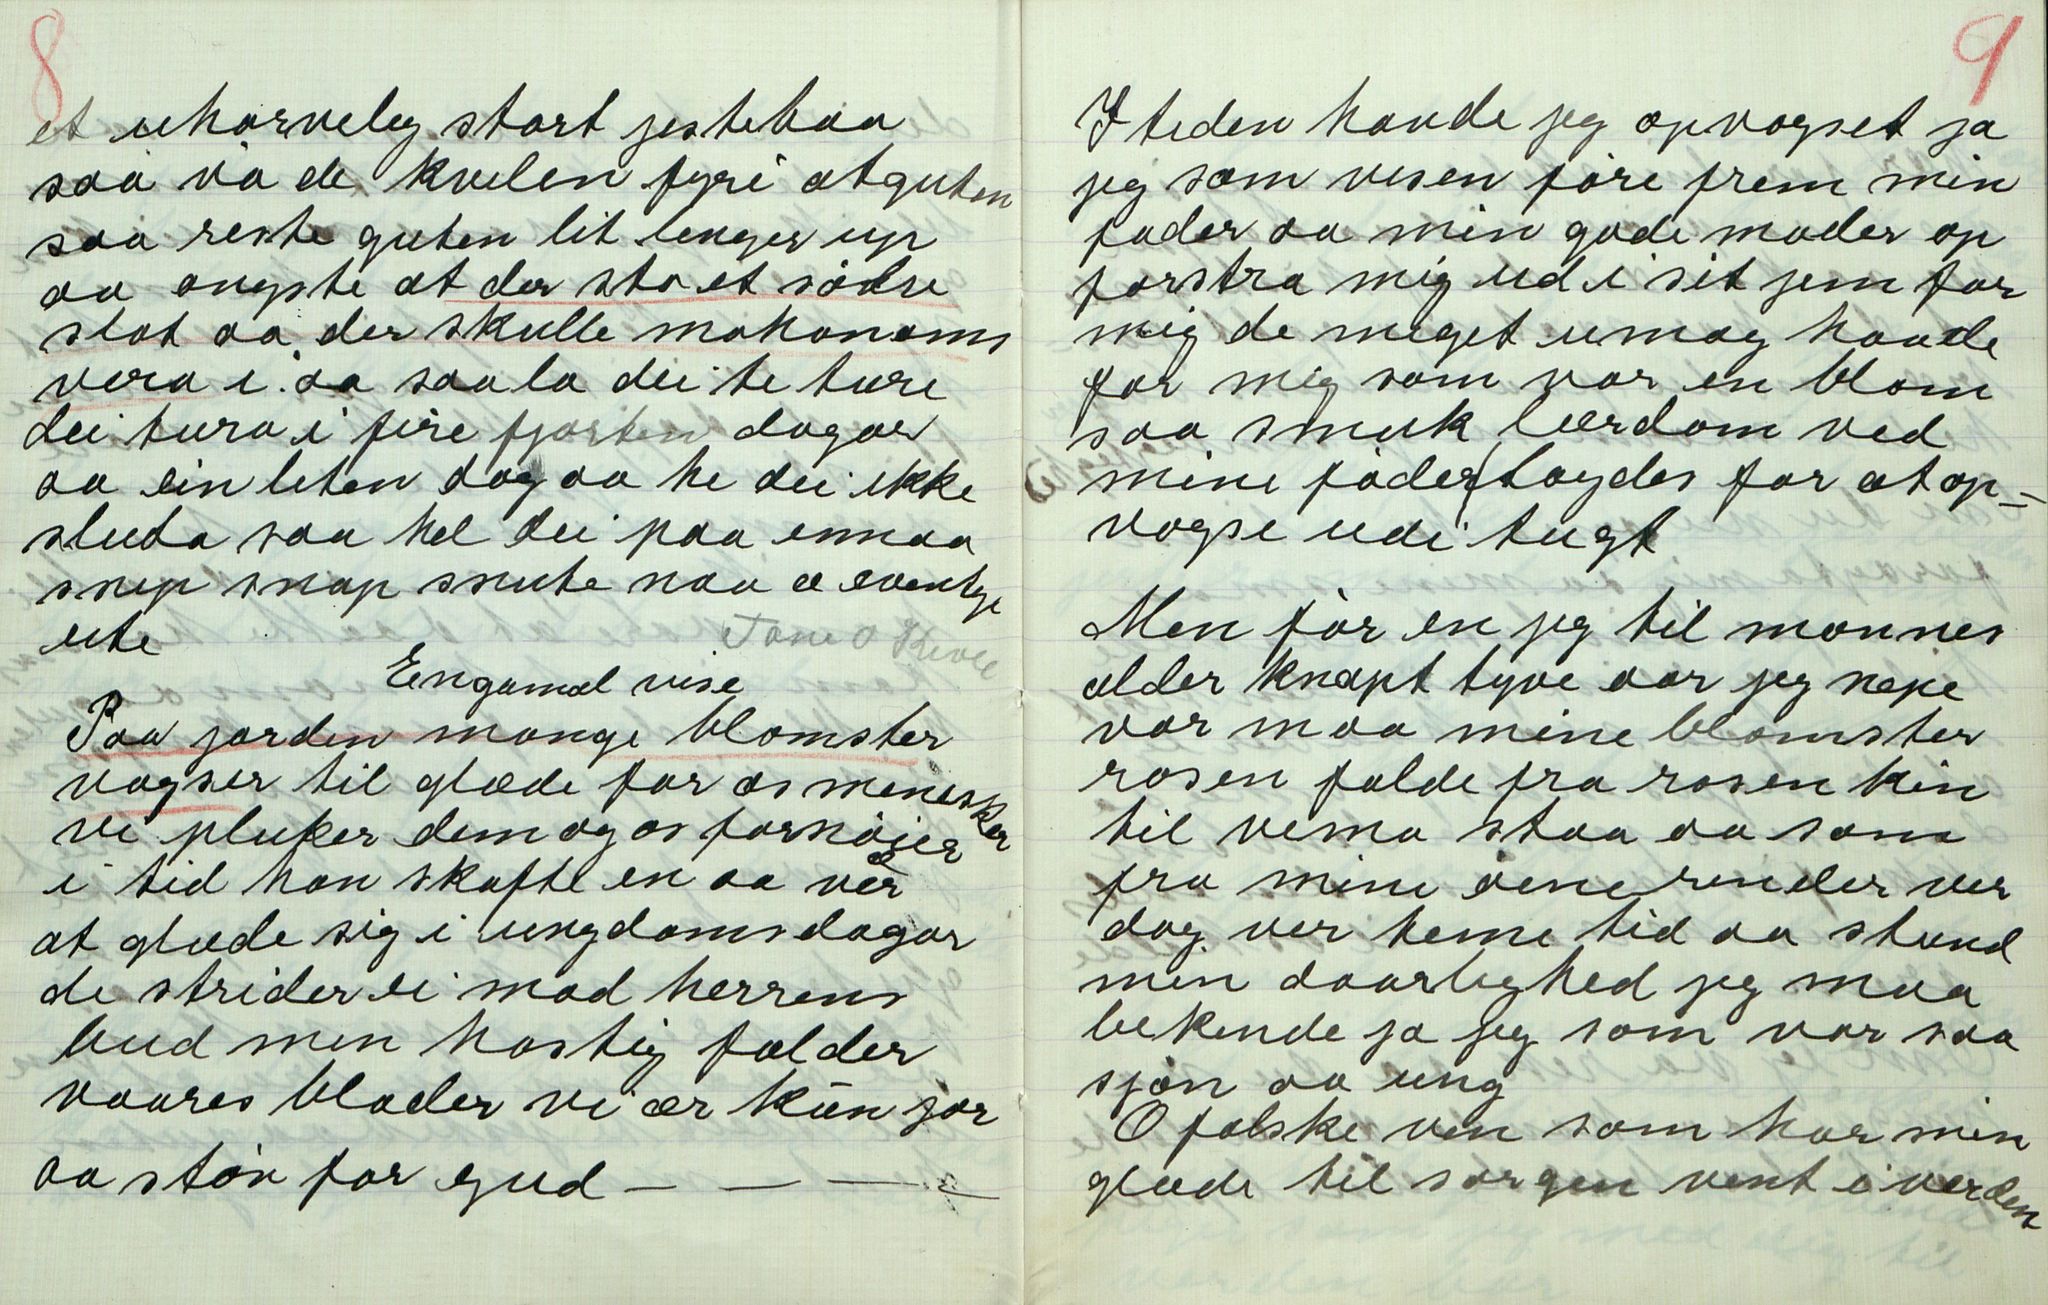 8
et uhorveleg stort jestebaa
saa va de kvelen fyri at guten
saa reiste guten lit lenger up
aa øngste at der sto et sådre
slot aa der skulle mohonoms
vera i aa saa la dei te ture
dei tura i fire fjorten dogar
aa ein leten dag aa he dei ikke
sluta saa hel dei paa ennaa
snip snap snute naa æ eventyr
ute
Tone O
Eengamal vise
Paa jorden mange blomster
vogser til glæde for os menesker
vi pluker dem og os fornøier
i tid han skafte en aa ver
at glæde sig i ungdoms dagar
de strider ei mod herrens
bud men hastig falder
vaares blader vi ær kun jor
aa støv for gud — — — —
9
I teden havde jeg opvogset ja
jeg som visen føre frem min
fader aa min gode moder op
forstra mig ud i sit jem for
mig de meget umag havde
for mig som var en blom
saa smuk lærdom ved
mine føder tøydes for at op-
vogse udi tugt
Men før en jeg til mannes
alder knapt tyve aar jeg neje
var maa mine blomster
rosen falde fra rosen kin
til vema staa aa som
fra mine øene render ver
dag ver teme tid aa stund
min daarlighed jeg maa
bekende ja jeg som var saa
sjøn aa ung
O falske ven som har min
glæde til sorgen vent i verden